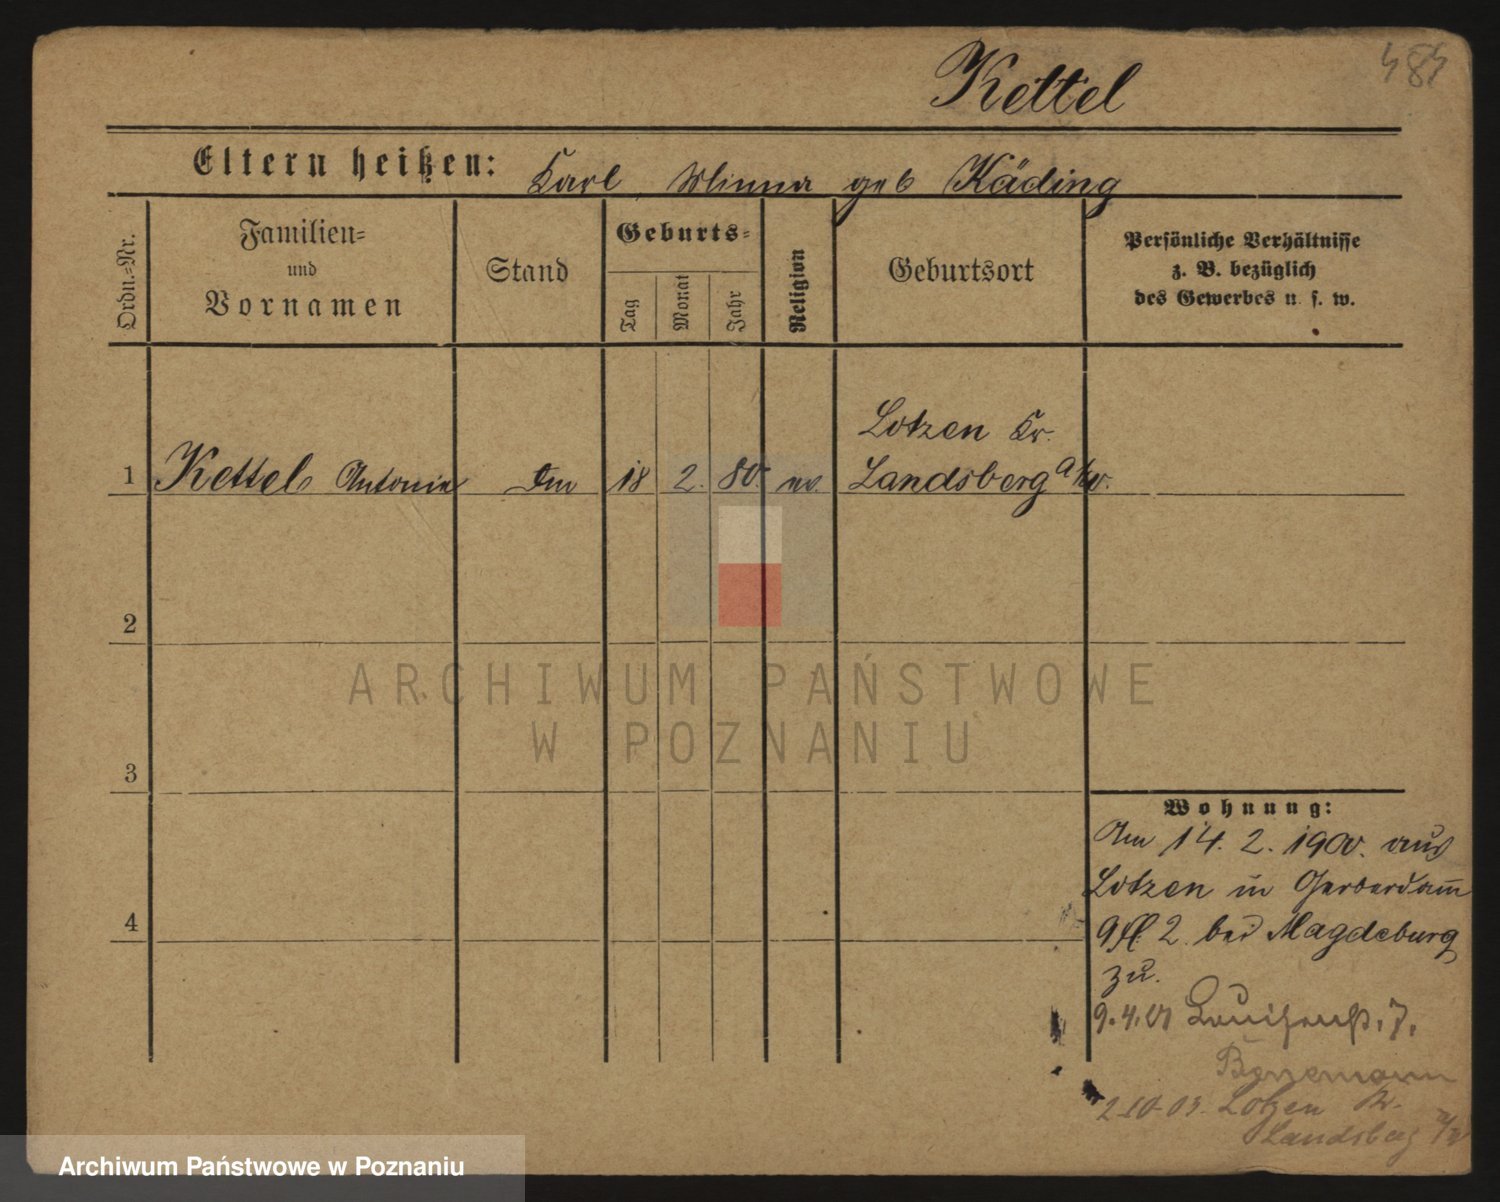 484
Kettel
Eltern heißen: Karl, Minna geb Käding
Ordn.=Nr.
Familien=
und
Vornamen
Stand
Geburts=
Tag
Monat
Jahr
Religion
Geburtsort
Persönliche Verhältnisse
z. B. bezüglich
des Gewerbes u. s. w.
Lotzen Kr.
1 Kettel Antonie 18 2. 80. ev. Landsberg a/w.
2
ARCHIWUM PAŃSTWOWE
W POZNANIU
3
Wohnung:
Am 14. 2. 1900. aus
Lotzen in Gerberdam̄
2 bei Magdeburg
zu.
9.4.01 Louisenstr. 7.
2.10.03. Lotzen Kr.
Landsberg a/w
4
Archiwum Państwowe w Poznaniu